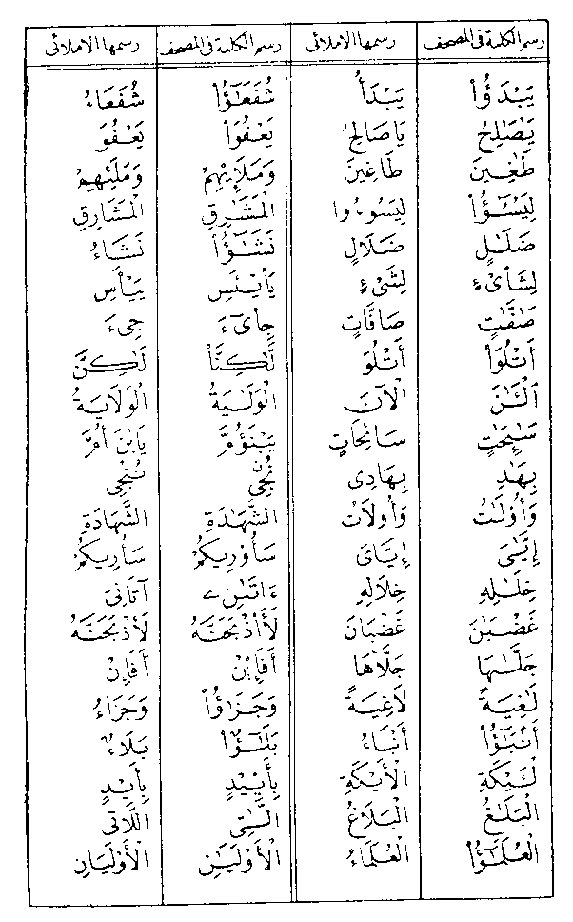 رسم الكلمة فى المصحف رسمها الاملائى رسم الكلمة فى المصحف رسمها الاملائى
يَبْدَؤُاْ يَبْدَأُ شُفَعَٰٓؤُاْ شُفَعَاءُ
يَٰصَٰلِحُ يَاصَالِحُ يَعْفُوَاْ يَعْفُوَ
طَٰغِينَ طَاغِينَ وَمَلَإِيْهِمْ وَمَلَئِهِمْ
لِيَسُـُٔواْ لِيَسُوءُوا الْمَشَٰرِقِ الْمَشَارِقِ
ضَلَٰلٍ ضَلَالٍ نَشَٰٓؤُاْ نَشَاءُ
لِشَاْىْءٍ لِشَىْءٍ يَاْيْـَٔسِ يَيْأَسِ
صَٰٓفَّٰتٍ صَافَّاتٍ جِاىٓءَ جِىءَ
أَتْلُوَاْ أَتْلُوَ لَّٰكِنَّاْ لَٰكِنَّ
اَلْـَٰٔنَ الْآنَ الْوَلَٰيَةُ الْوَلَايَةُ
سَٰٓئِحَٰتٍ سَائِحَاتٍ يَبْنَؤُمَّ يَابْنَ أُمَّ
بِهَٰدِ بِهَادِى نُۨجِى نُنْجِى
وَأُوْلَٰتُ وَأُولَاتُ الشَّهَٰدَةِ الشَّهَادَةِ
إِيَّٰىَ إِيَّاىَ سَأُوْرِيكُمْ سَأُرِيكُمْ
خِلَٰلِهِ خِلَالِهِ ءَاتَىٰنِۦ آتَانِىَ
غَضْبَٰنَ غَضْبَانَ لَأَاْذْبَحَنَّهُ لَأَذْبَحَنَّهُ
جَلَّىٰهَا جَلَّاهَا أَفَإِيْن أَفَإِنْ
لَٰغِيَةً لَاغِيَةً وَجَزَٰٓؤُاْ وَجَزَاءُ
أَنۢبَٰٓؤُاْ أَنْبَاءُ بَلَٰٓؤٌاْ بَلَاءٌ
لْـَٔيْكَةِ الْأَيْكَةِ بِأَيْيْدٍ بِأَيْدٍ
الْبَلَٰغُ الْبَلَاغُ الَّٰتِى اللَّاتِى
الْعُلَمَٰٓؤُاْ الْعُلَمَاءُ الْأَوْلَيَٰنِ الْأَوْلَيَانِ